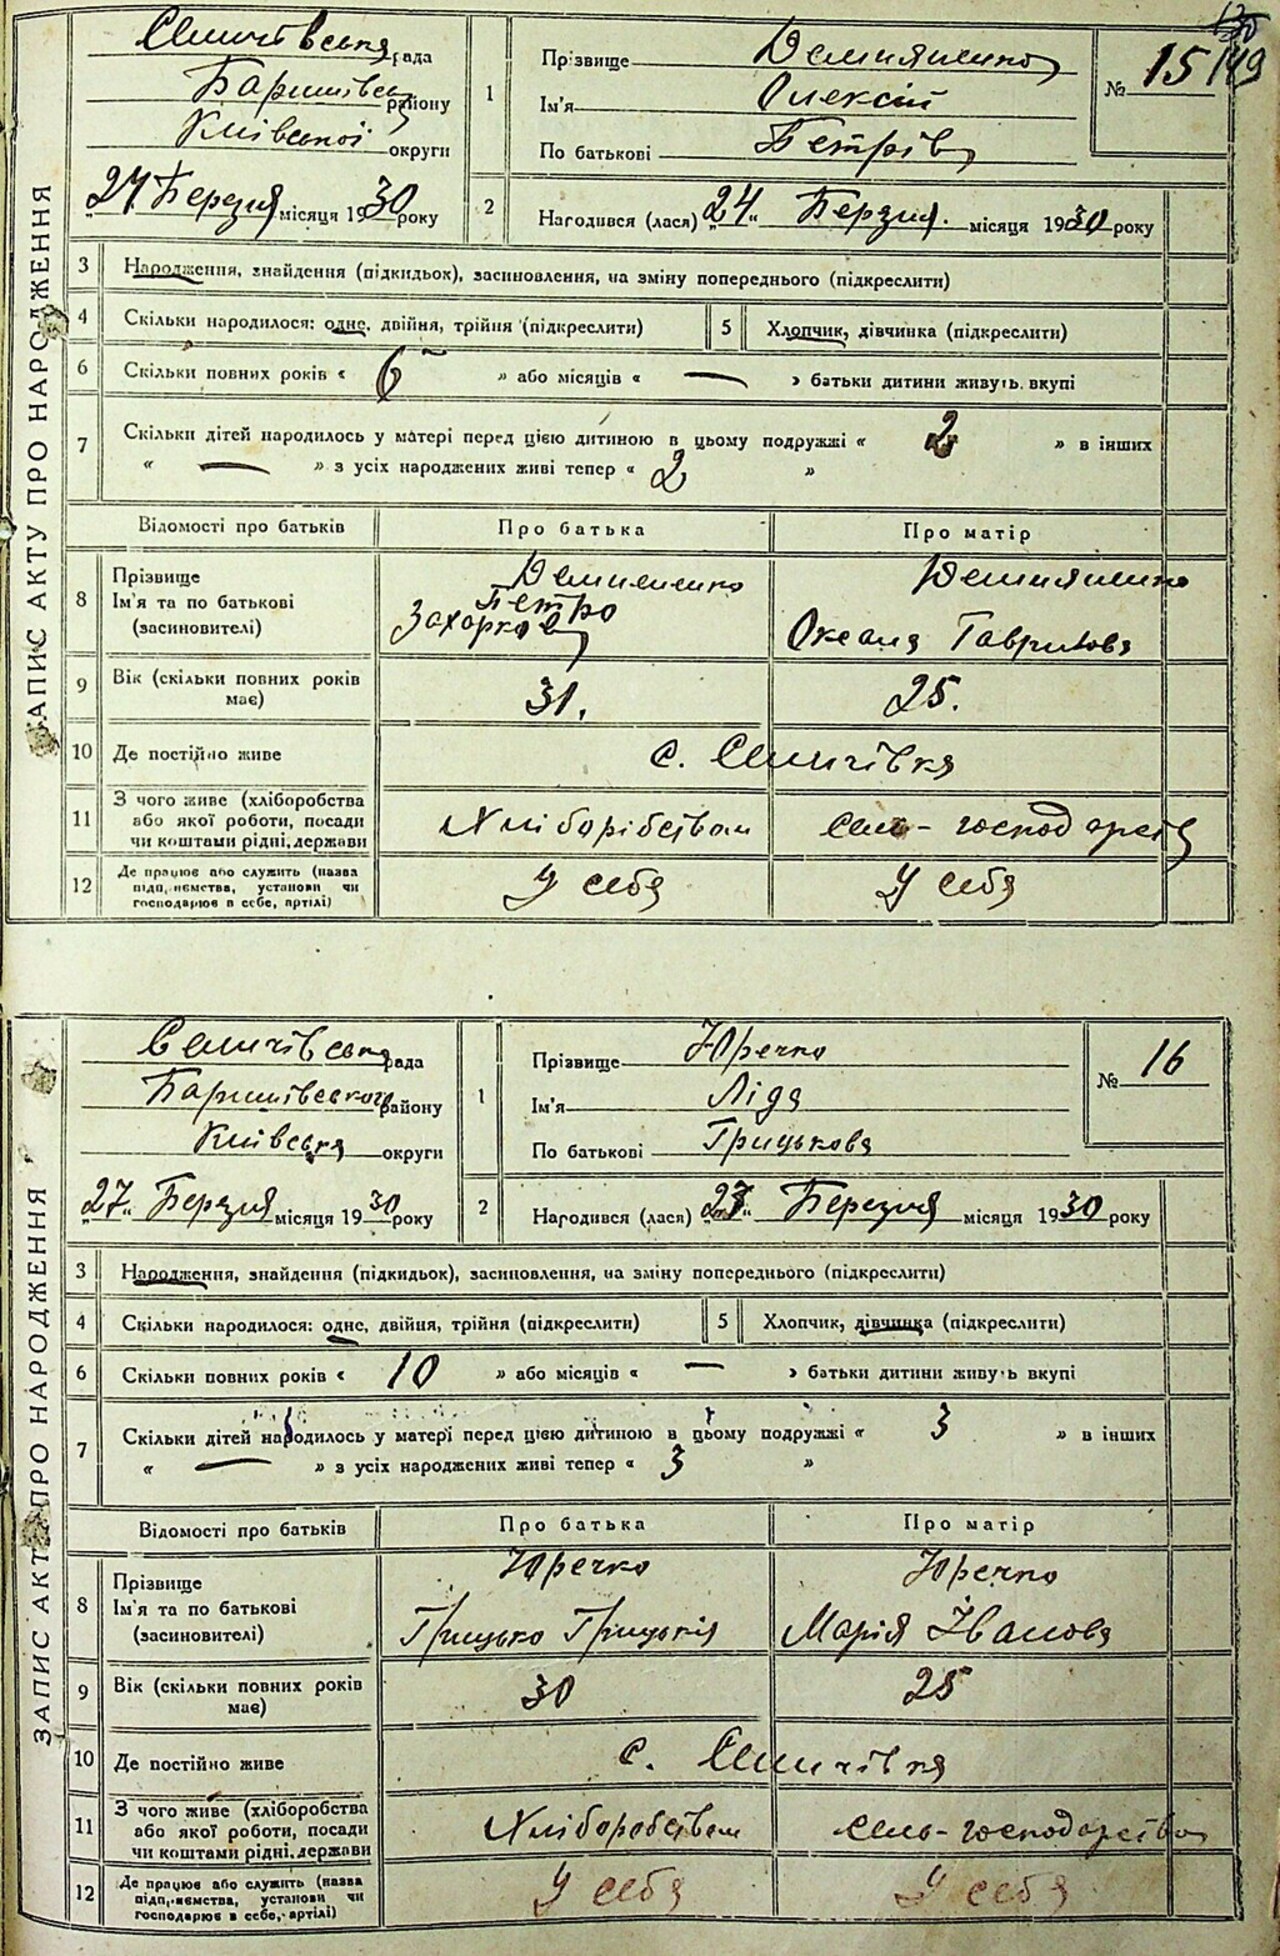 ЗАПИС АКТУ ПРО НАРОДЖЕННЯ
Селичівська рада
Баришівськ району
Київської округи
„27 Березня місяця 1930 року
1
Прізвище Демияненко
Ім'я Олексій
По батькові Петрів
№ 15
149
2
Народився (лася) „24" Березня. місяця 1930 року
3 Народження, знайдення (підкидьок), засиновлення, на зміну попереднього (підкреслити)
4 Скільки народилося: одне, двійня, трійня (підкреслити) 5 Хлопчик, дівчинка (підкреслити)
6 Скільки повних років « 6 » або місяців « — » батьки дитини живуть вкупі
7 Скільки дітей народилось у матері перед цією дитиною в цьому подружжі « 2 » в інших
« — » з усіх народжених живі тепер « 2 »
Відомості про батьків Про батька Про матір
8 Прізвище
Ім'я та по батькові
(засиновителі)
Демияненко
Петро
Захарков
Демияненко
Оксана Гаврилова
9 Вік (скільки повних років має) 31. 25.
10 Де постійно живе с. Селичівка
11 З чого живе (хліборобства
або якої роботи, посади
чи коштами рідні, держави
Хліборібством сель-господарств
12 Де працює або служить (назва
підприємства, установи чи
господарює в себе, артілі)
У себя У себя
ЗАПИС АКТ ПРО НАРОДЖЕННЯ
Селичівська рада
Баришівського району
Київська округи
„27" Березня місяця 1930 року
1
Прізвище Юречко
Ім'я Ліда
По батькові Грицькова
№ 16
2
Народився (лася) „23" Березня місяця 1930 року
3 Народження, знайдення (підкидьок), засиновлення, на зміну попереднього (підкреслити)
4 Скільки народилося: одне, двійня, трійня (підкреслити) 5 Хлопчик, дівчинка (підкреслити)
6 Скільки повних років « 10 » або місяців « — » батьки дитини живуть вкупі
7 Скільки дітей народилось у матері перед цією дитиною в цьому подружжі « 3 » в інших
« — » з усіх народжених живі тепер « 3 »
Відомості про батьків Про батька Про матір
8 Прізвище
Ім'я та по батькові
(засиновителі)
Юречко
Грицько Грицьків
Юречко
Марія Іванова
9 Вік (скільки повних років має) 30 25
10 Де постійно живе с. Селичівка
11 З чого живе (хліборобства
або якої роботи, посади
чи коштами рідні, держави
Хліборобством сель-господарство
12 Де працює або служить (назва
підприємства, установи чи
господарює в себе, артілі)
У себя У себя